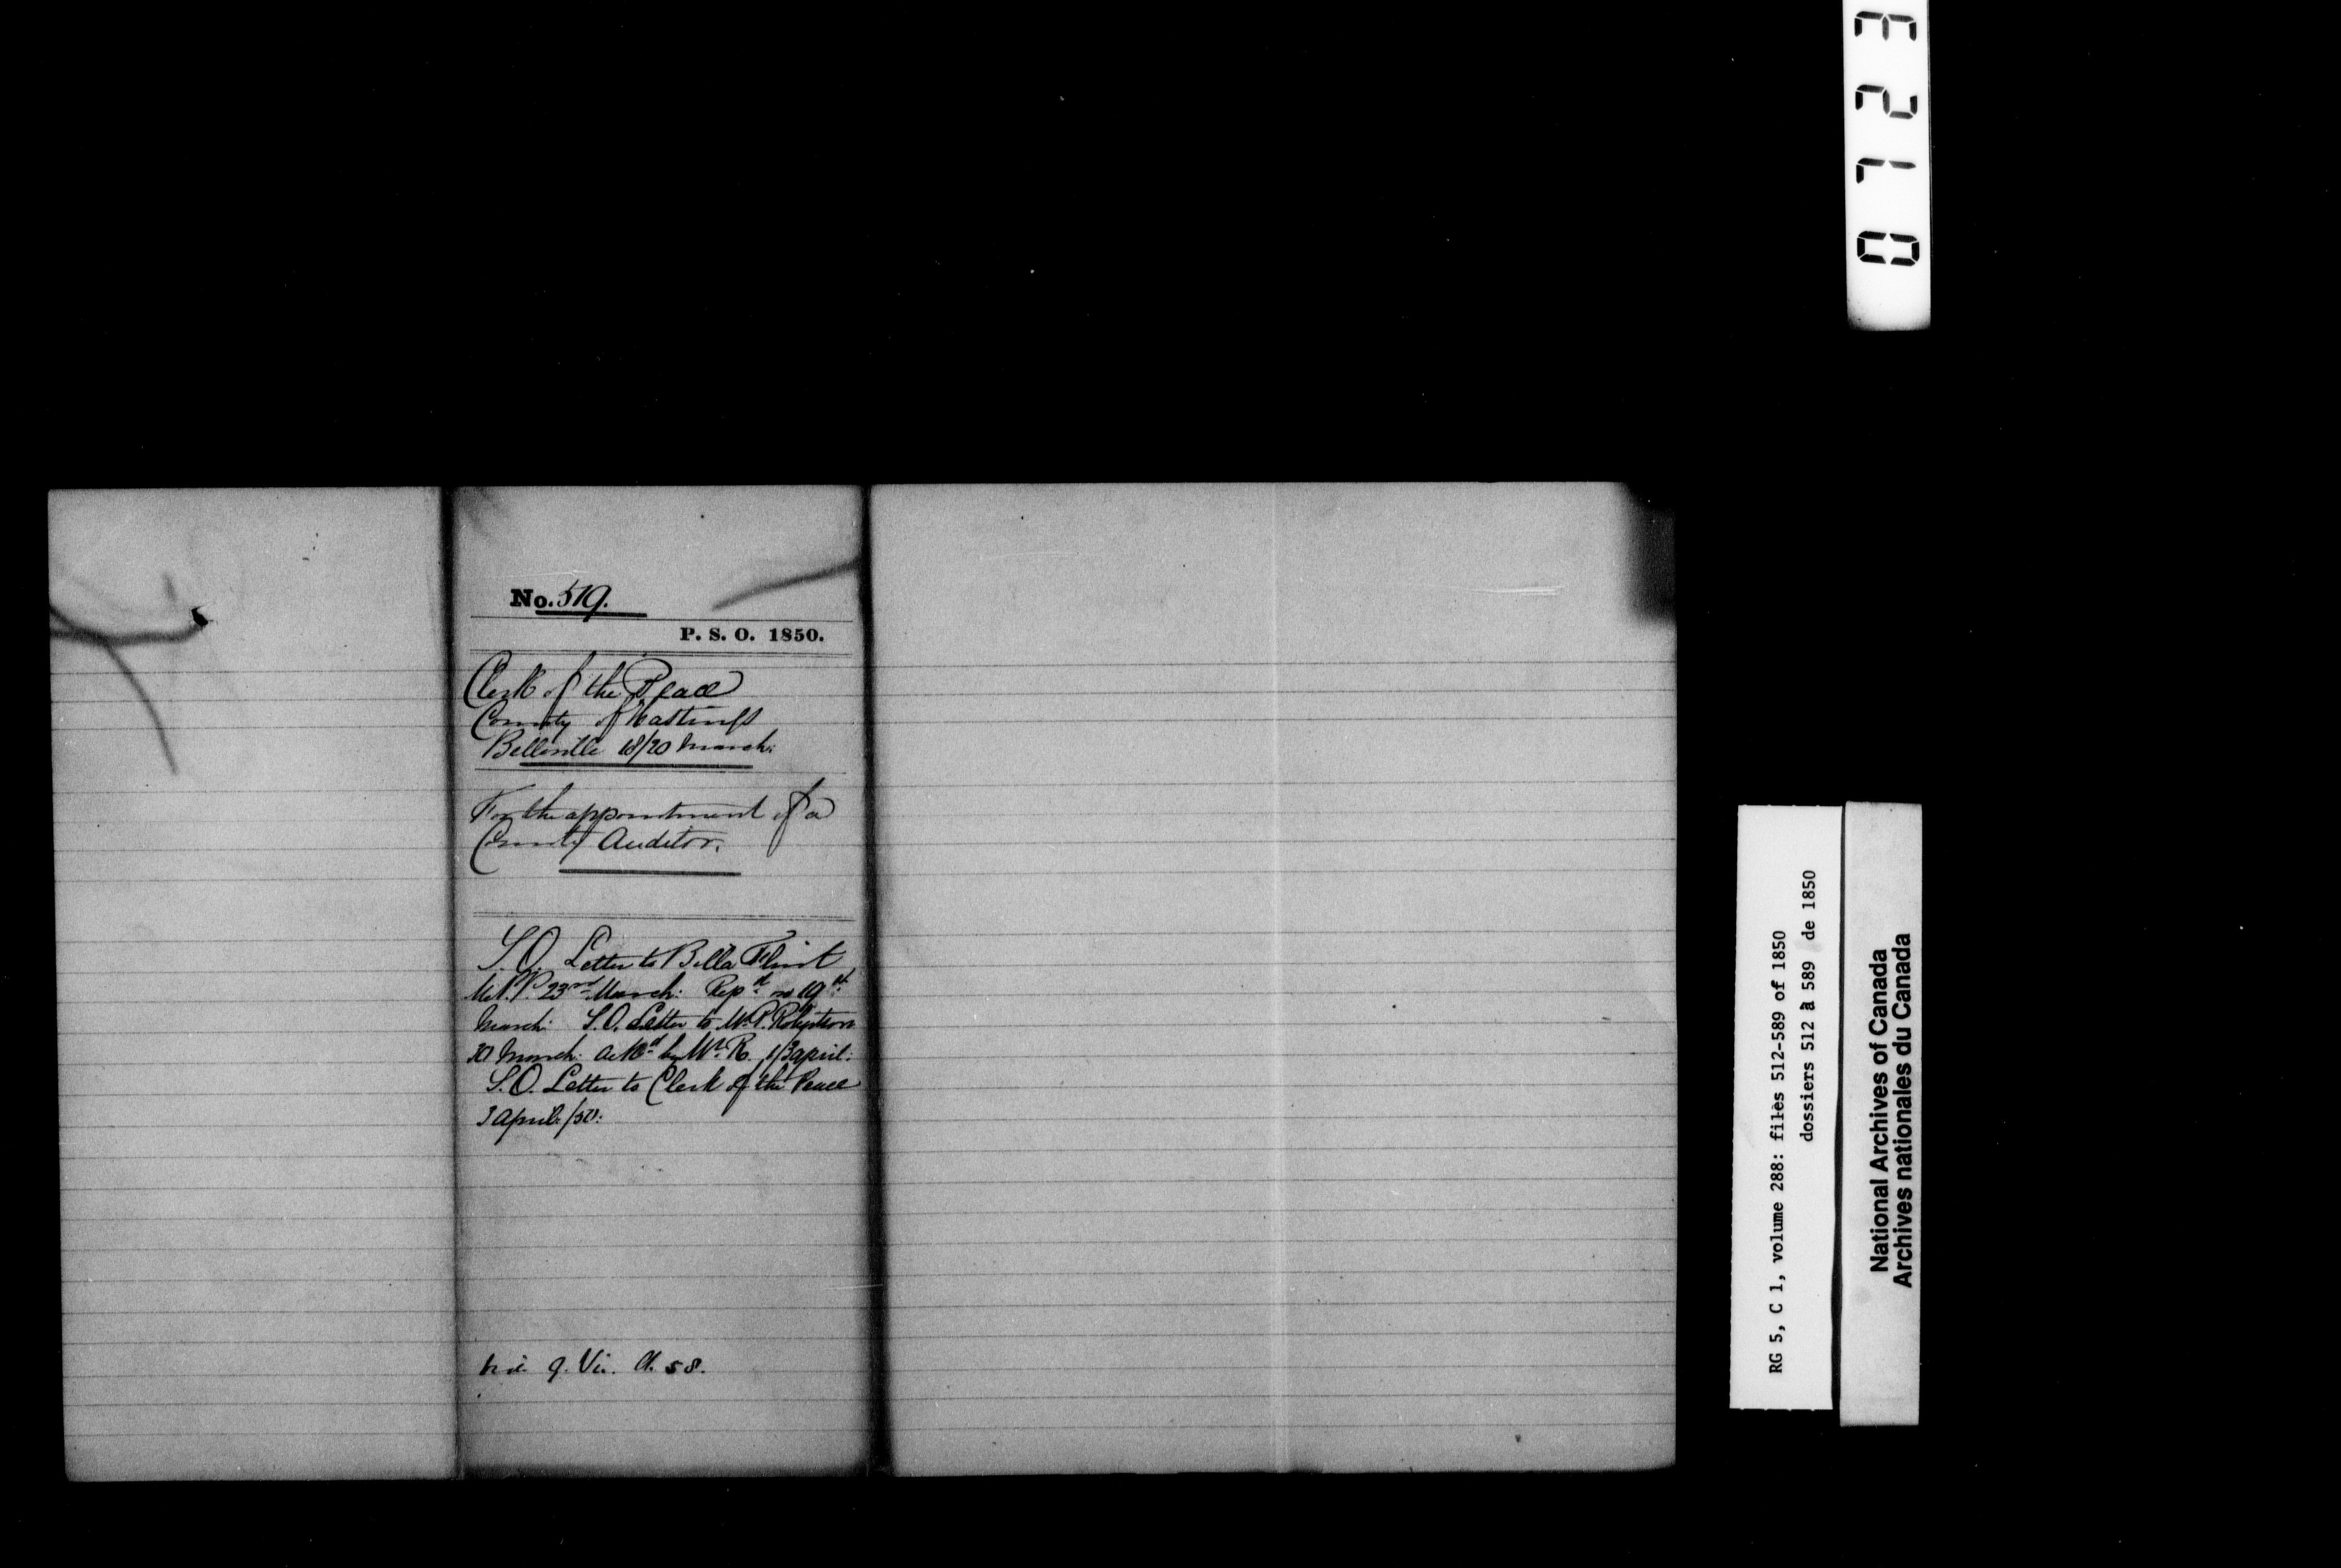 No. 519.
P. S. O. 1850.
Clerk of the Peace
County of Hastings
Belleville 18/20 March.
For the appointment of a
County Auditor.
S.O. Letter to Billa Flint
M.P.P. 23rd March. Rep. 19th
March. S.O. Letter to Mr. P. Robertson
30 March. Ackd by Mr. R. 1/3 April.
S.O. Letter to Clerk of the Peace
3 April /50.
vide 9. Vic. Ch. 58.
0123
RG 5, C 1, volume 288: files 512-589 of 1850
dossiers 512 à 589 de 1850
National Archives of Canada
Archives nationales du Canada